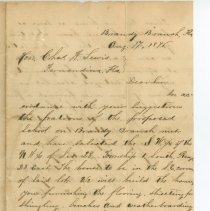 Brandy Branch, Fla
Aug. 17, 1886
Hon. Chas. W. Lewis
Fernandina, Fla.
Dear Sir:
In ac-
cordance with your suggestions
the patrons of the proposed
school on Brandy Branch met
and have selected the S.W. 1/4 of the
N.W. 1/4 of Sec. 22 Township 1 South Range
23 East. The house to be in the S.E. corner
of said lot. We will build the house,
you furnishing the flooring, sheeting for
shingling, benches and weatherboarding